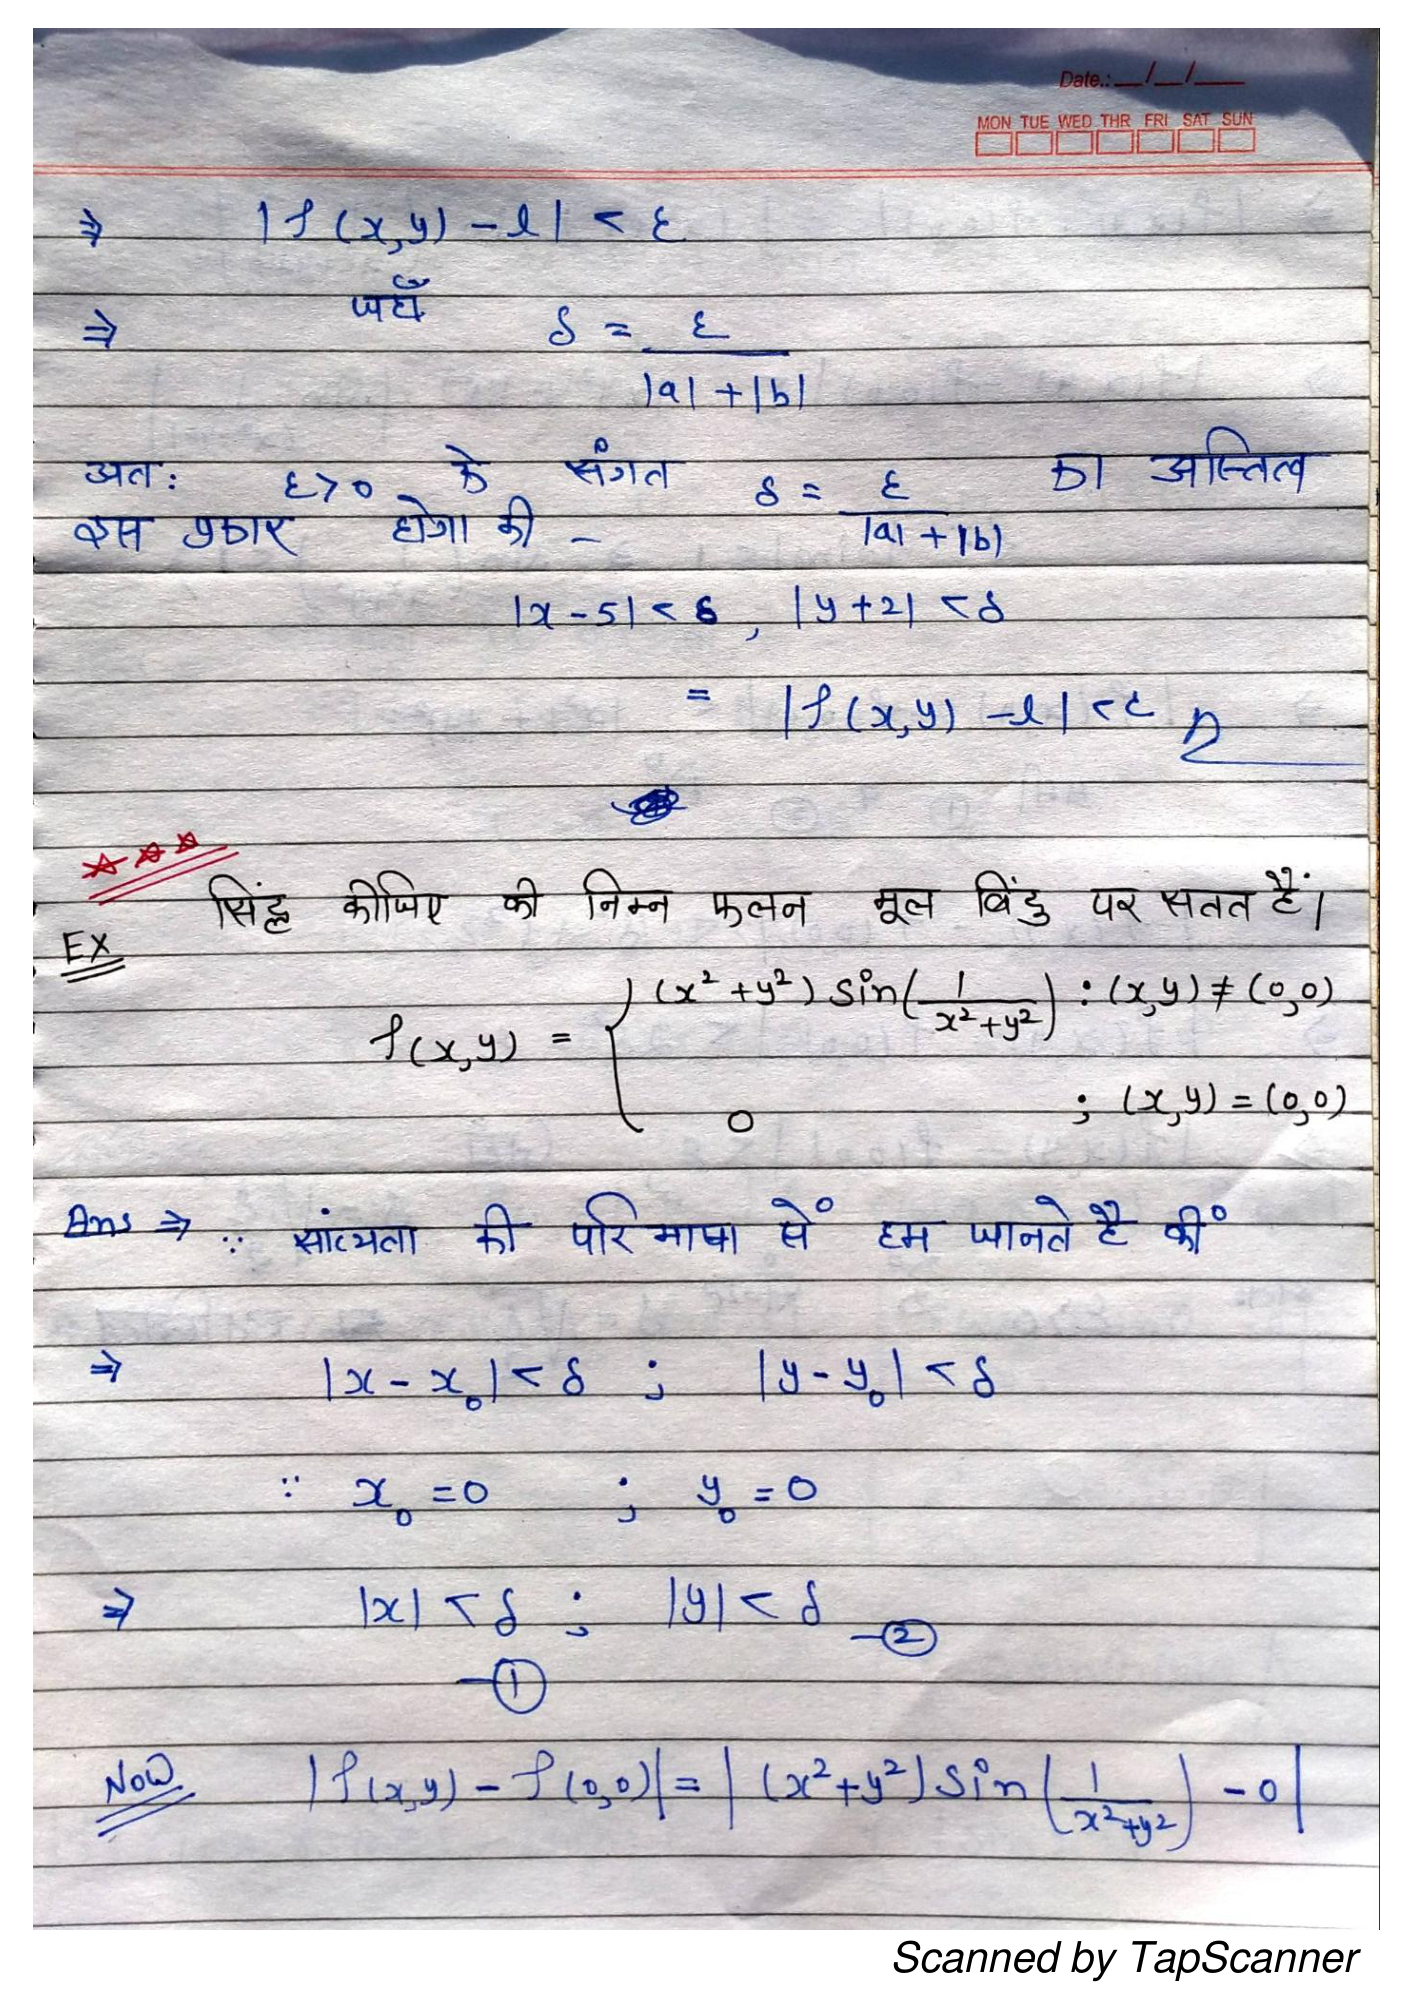 Date.: __/__/__
MON TUE WED THR FRI SAT SUN
⇒ |f(x,y) - l| < ε
⇒ जहाँ δ = ε / (|a| + |b|)
अत: ε>0 के संगत δ = ε / (|a| + |b|) का अस्तित्व
इस प्रकार होगा की -
|x - 5| < δ , |y + 2| < δ
= |f(x,y) - l| < ε
सिंद्ध कीजिए की निम्न फलन मूल बिंदु पर सतत हैं।
EX
f(x,y) = { (x² + y²) sin(1 / (x² + y²)) : (x,y) ≠ (0,0)
0 ; (x,y) = (0,0)
Ans ⇒ ∵ सांत्यता की परिभाषा से हम जानते है की
⇒ |x - x₀| < δ ; |y - y₀| < δ
∵ x₀ = 0 ; y₀ = 0
⇒ |x| < δ ; |y| < δ -②
-①
Now |f(x,y) - f(0,0)| = |(x² + y²) sin(1 / (x² + y²)) - 0|
Scanned by TapScanner